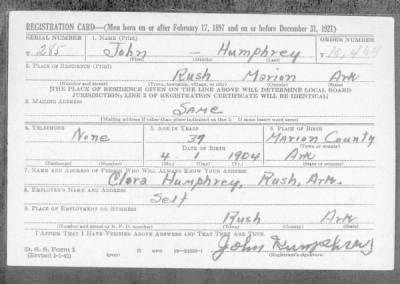 REGISTRATION CARD—(Men born on or after February 17, 1897 and on or before December 31, 1921)
SERIAL NUMBER 1. NAME (Print) ORDER NUMBER
T. 285 John — Humphrey
(First) (Middle) (Last)
2. PLACE OF RESIDENCE (Print)
Rush Marion Ark
(Number and street) (Town, township, village, or city) (County) (State)
[THE PLACE OF RESIDENCE GIVEN ON THE LINE ABOVE WILL DETERMINE LOCAL BOARD
JURISDICTION; LINE 2 OF REGISTRATION CERTIFICATE WILL BE IDENTICAL]
3. MAILING ADDRESS
Same
[Mailing address if other than place indicated on line 2. If same insert word same]
4. TELEPHONE 5. AGE IN YEARS 6. PLACE OF BIRTH
None 37 Marion County
DATE OF BIRTH (Town or county)
4 1 1904 Ark
(Exchange) (Number) (Mo.) (Day) (Yr.) (State or country)
7. NAME AND ADDRESS OF PERSON WHO WILL ALWAYS KNOW YOUR ADDRESS
Clara Humphrey, Rush, Ark.
8. EMPLOYER'S NAME AND ADDRESS
Self
9. PLACE OF EMPLOYMENT OR BUSINESS
Rush Ark
(Number and street or R. F. D. number) (Town) (County) (State)
I AFFIRM THAT I HAVE VERIFIED ABOVE ANSWERS AND THAT THEY ARE TRUE.
D. S. S. Form 1
(Revised 1-1-42) (over) John Humphrey
(Registrant's signature)